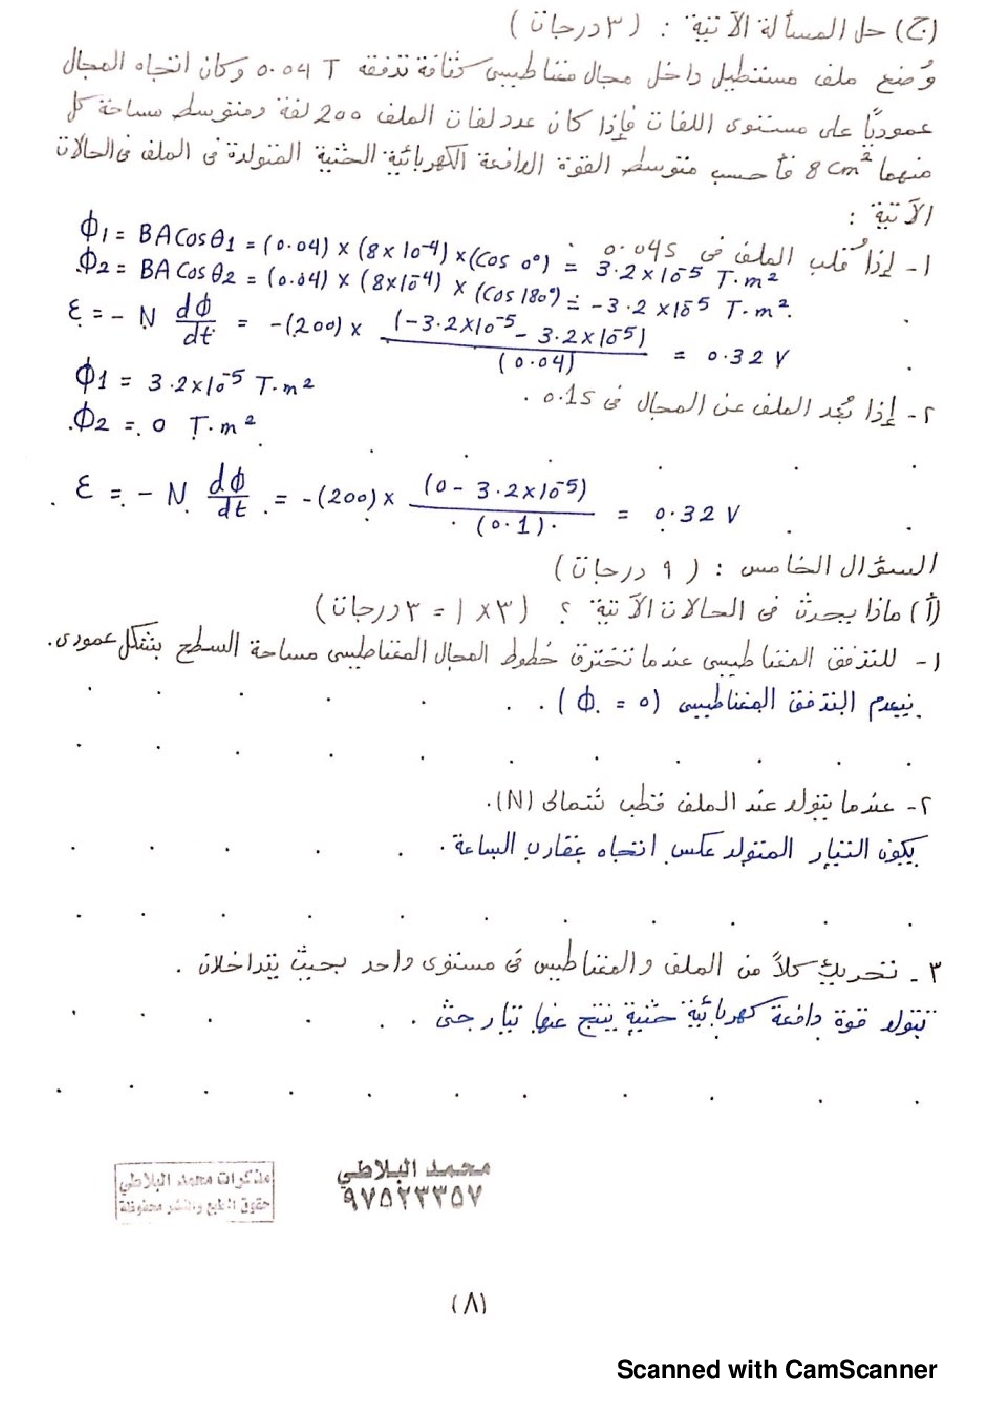 (ج) حل المسألة الآتية : (٣ درجات)
وُضع ملف مستطيل داخل مجال مغناطيسي كثافة تدفقه 0.04 T وكان اتجاه المجال
عموديًا على مستوى اللفات فإذا كان عدد لفات الملف 200 لفة ومتوسط مساحة كل
منهما 8 cm² فأحسب متوسط القوة الدافعة الكهربائية الحثية المتولدة في الملف في الحالات
الآتية :
١- إذا قُلب الملف في 0.04s
Φ1 = BA Cosθ1 = (0.04) × (8 × 10⁻⁴) × (Cos 0°) = 3.2 × 10⁻⁵ T.m²
Φ2 = BA Cosθ2 = (0.04) × (8×10⁻⁴) × (Cos 180°) = -3.2 × 10⁻⁵ T.m²
ε = - N dΦ/dt = -(200) × (-3.2×10⁻⁵ - 3.2×10⁻⁵)/(0.04) = 0.32 V
٢- إذا بُعد الملف عن المجال في 0.1s .
Φ1 = 3.2×10⁻⁵ T.m²
Φ2 = 0 T.m²
ε = - N dΦ/dt = -(200) × (0 - 3.2×10⁻⁵)/(0.1) = 0.32 V
السؤال الخامس : (٩ درجات)
(أ) ماذا يحدث في الحالات الآتية ؟ (٣ × ١ = ٣ درجات)
١- للتدفق المغناطيسي عندما تخترق خطوط المجال المغناطيسي مساحة السطح بشكل عمودي.
ينعدم التدفق المغناطيسي (Φ = 0) .
٢- عندما يتولد عند الملف قطب شمالي (N).
يكون التيار المتولد عكس اتجاه عقارب الساعة .
٣- تحريك كلاً من الملف والمغناطيس في مستوى واحد بحيث يتداخلان .
تتولد قوة دافعة كهربائية حثية ينتج عنها تيار حثي .
محمد البلاطي
٩٧٥٢٣٣٥٧
مذكرات محمد البلاطي
حقوق الطبع والنشر محفوظة
(٨)
Scanned with CamScanner